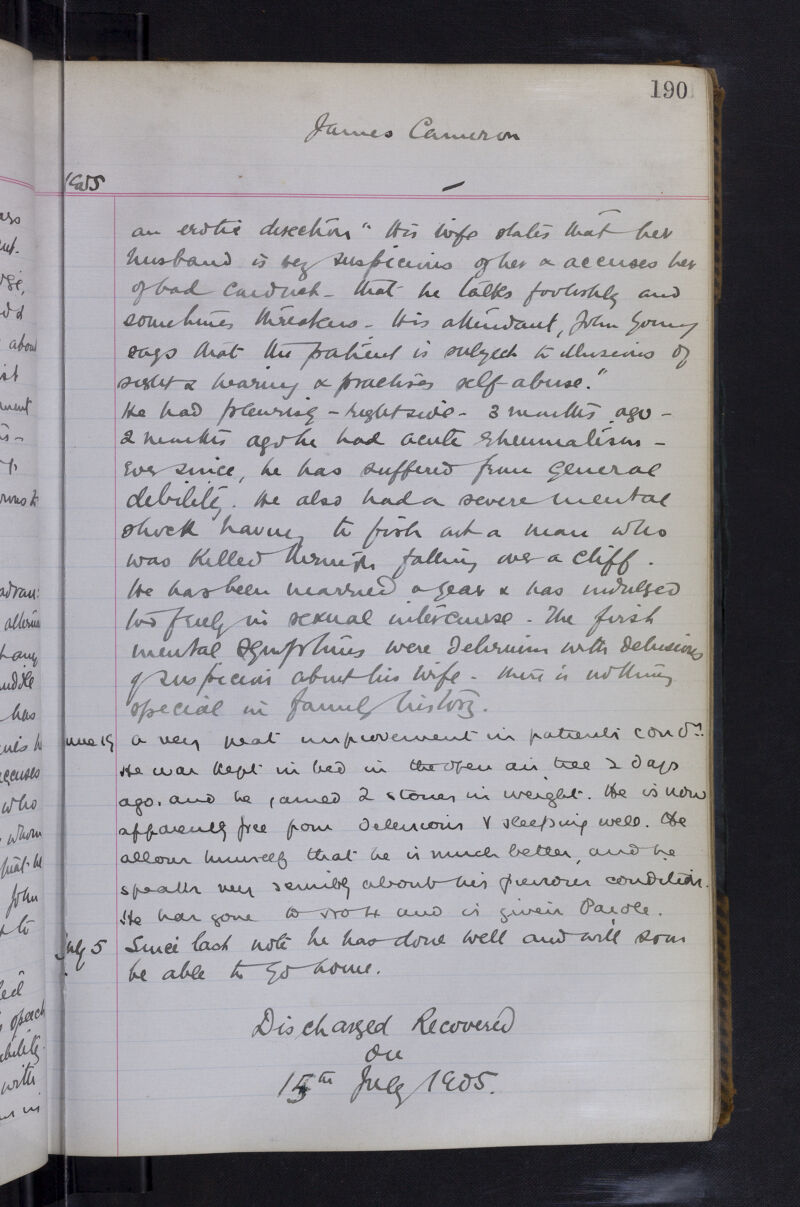 190
James Cameron
1905
an erotic direction" His wife states that her
husband is very suspicious of her & accuses her
of bad conduct - that he talks foolishly and
sometimes threatens - His attendant, John
says that the patient is subject to illusions of
sight & hearing & practises self-abuse."
He had pleurisy - right side - 3 months ago -
2 months ago he had acute rheumatism -
Ever since, he has suffered from general
debility. He also had a severe mental
shock having to fish out a man who
was killed through falling over a cliff.
He has been married a year & has indulged
too freely in sexual intercourse - The first
mental symptoms were delirium with delusions
of suspicion about his wife - there is nothing
special in family history.
June 19 a very great improvement in patients condn.
He was kept in bed in the open air till 2 days
ago. and he gained 2 stones in weight. He is now
apparently free from delusions & sleeping well. He
allows himself that he is much better, and he
speaks very sensibly about his previous condition.
He has gone to work and is given Parole.
July 5 Since last note he has done well and will soon
be able to go home.
Discharged Recovered
on
15th July 1905.